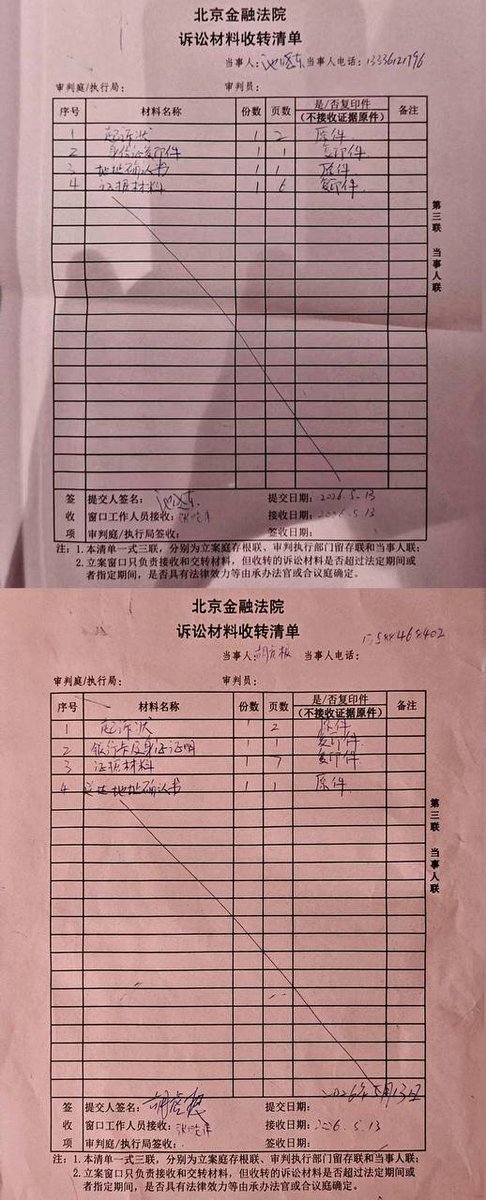 北京金融法院
诉讼材料收转清单
当事人： 当事人电话：13336121796
审判庭/执行局： 审判员：
序号 材料名称 份数 页数 是/否复印件（不接收证据原件） 备注
1 起诉状 1 2 原件
2 身份证复印件 1 1 复印件
3 地址确认书 1 1 原件
4 证据材料 1 6 复印件
第三联 当事人联
签收项
提交人签名： 提交日期：2026.5.13
窗口工作人员接收： 接收日期：2026.5.13
审判庭/执行局签收： 签收日期：
注：1.本清单一式三联，分别为立案庭存根联、审判执行部门留存联和当事人联；
2.立案窗口只负责接收和交转材料，但收转的诉讼材料是否超过法定期间或
者指定期间，是否具有法律效力等由承办法官或合议庭确定。
北京金融法院
诉讼材料收转清单
当事人： 当事人电话：
审判庭/执行局： 审判员：
序号 材料名称 份数 页数 是/否复印件（不接收证据原件） 备注
1 起诉状 1 2 原件
2 银行卡及身份证证明 1 1 复印件
3 证据材料 1 7 复印件
4 送达地址确认书 1 1 原件
第三联 当事人联
签收项
提交人签名： 提交日期：2026年5月13日
窗口工作人员接收： 接收日期：2026.5.13
审判庭/执行局签收： 签收日期：
注：1.本清单一式三联，分别为立案庭存根联、审判执行部门留存联和当事人联；
2.立案窗口只负责接收和交转材料，但收转的诉讼材料是否超过法定期间或
者指定期间，是否具有法律效力等由承办法官或合议庭确定。